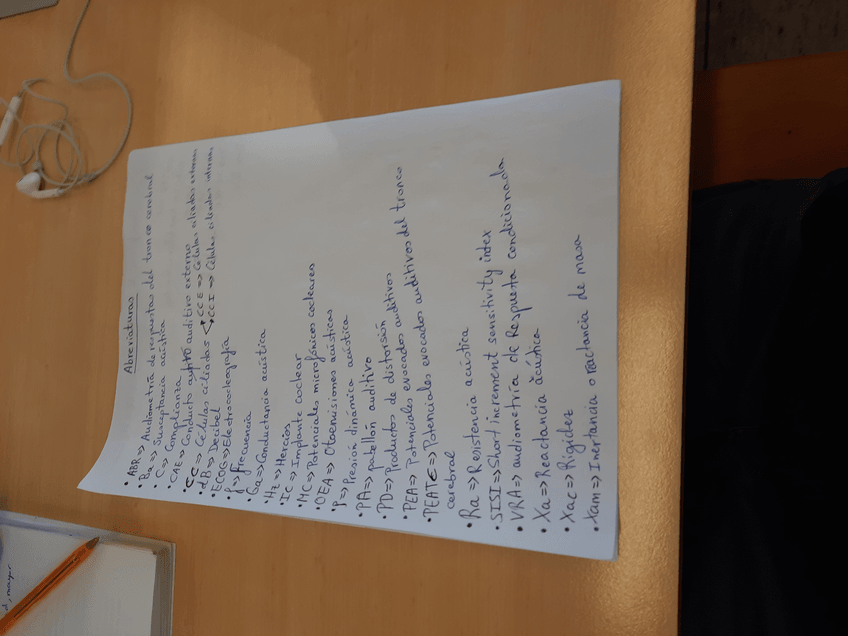 Abreviaturas
• ABR => Audiometría de respuestas del tronco cerebral
• Ba => Susceptancia acústica
• C => Complianza
• CAE => Conducto auditivo externo
• CC => Células ciliadas CCE => Células ciliadas externas
CCI => Células ciliadas internas
• dB => Decibel
• ECOG => Electrococleografía
• f => frecuencia
• Ga => Conductancia acústica
• Hz => Hercios
• IC => Implante coclear
• MC => Potenciales microfónicos cocleares
• OEA => Otoemisiones acústicas
• P => Presión dinámica acústica
• PA => pabellón auditivo
• PD => Productos de distorsión
• PEA => Potenciales evocados auditivos
• PEATC => Potenciales evocados auditivos del tronco
cerebral
• Ra => Resistencia acústica
• SISI => Short increment sensitivity index
• VRA => audiometría de Respuesta condicionada
• Xa => Reactancia acústica
• Xac => Rigidez
• Xam => Inertancia o reactancia de masa